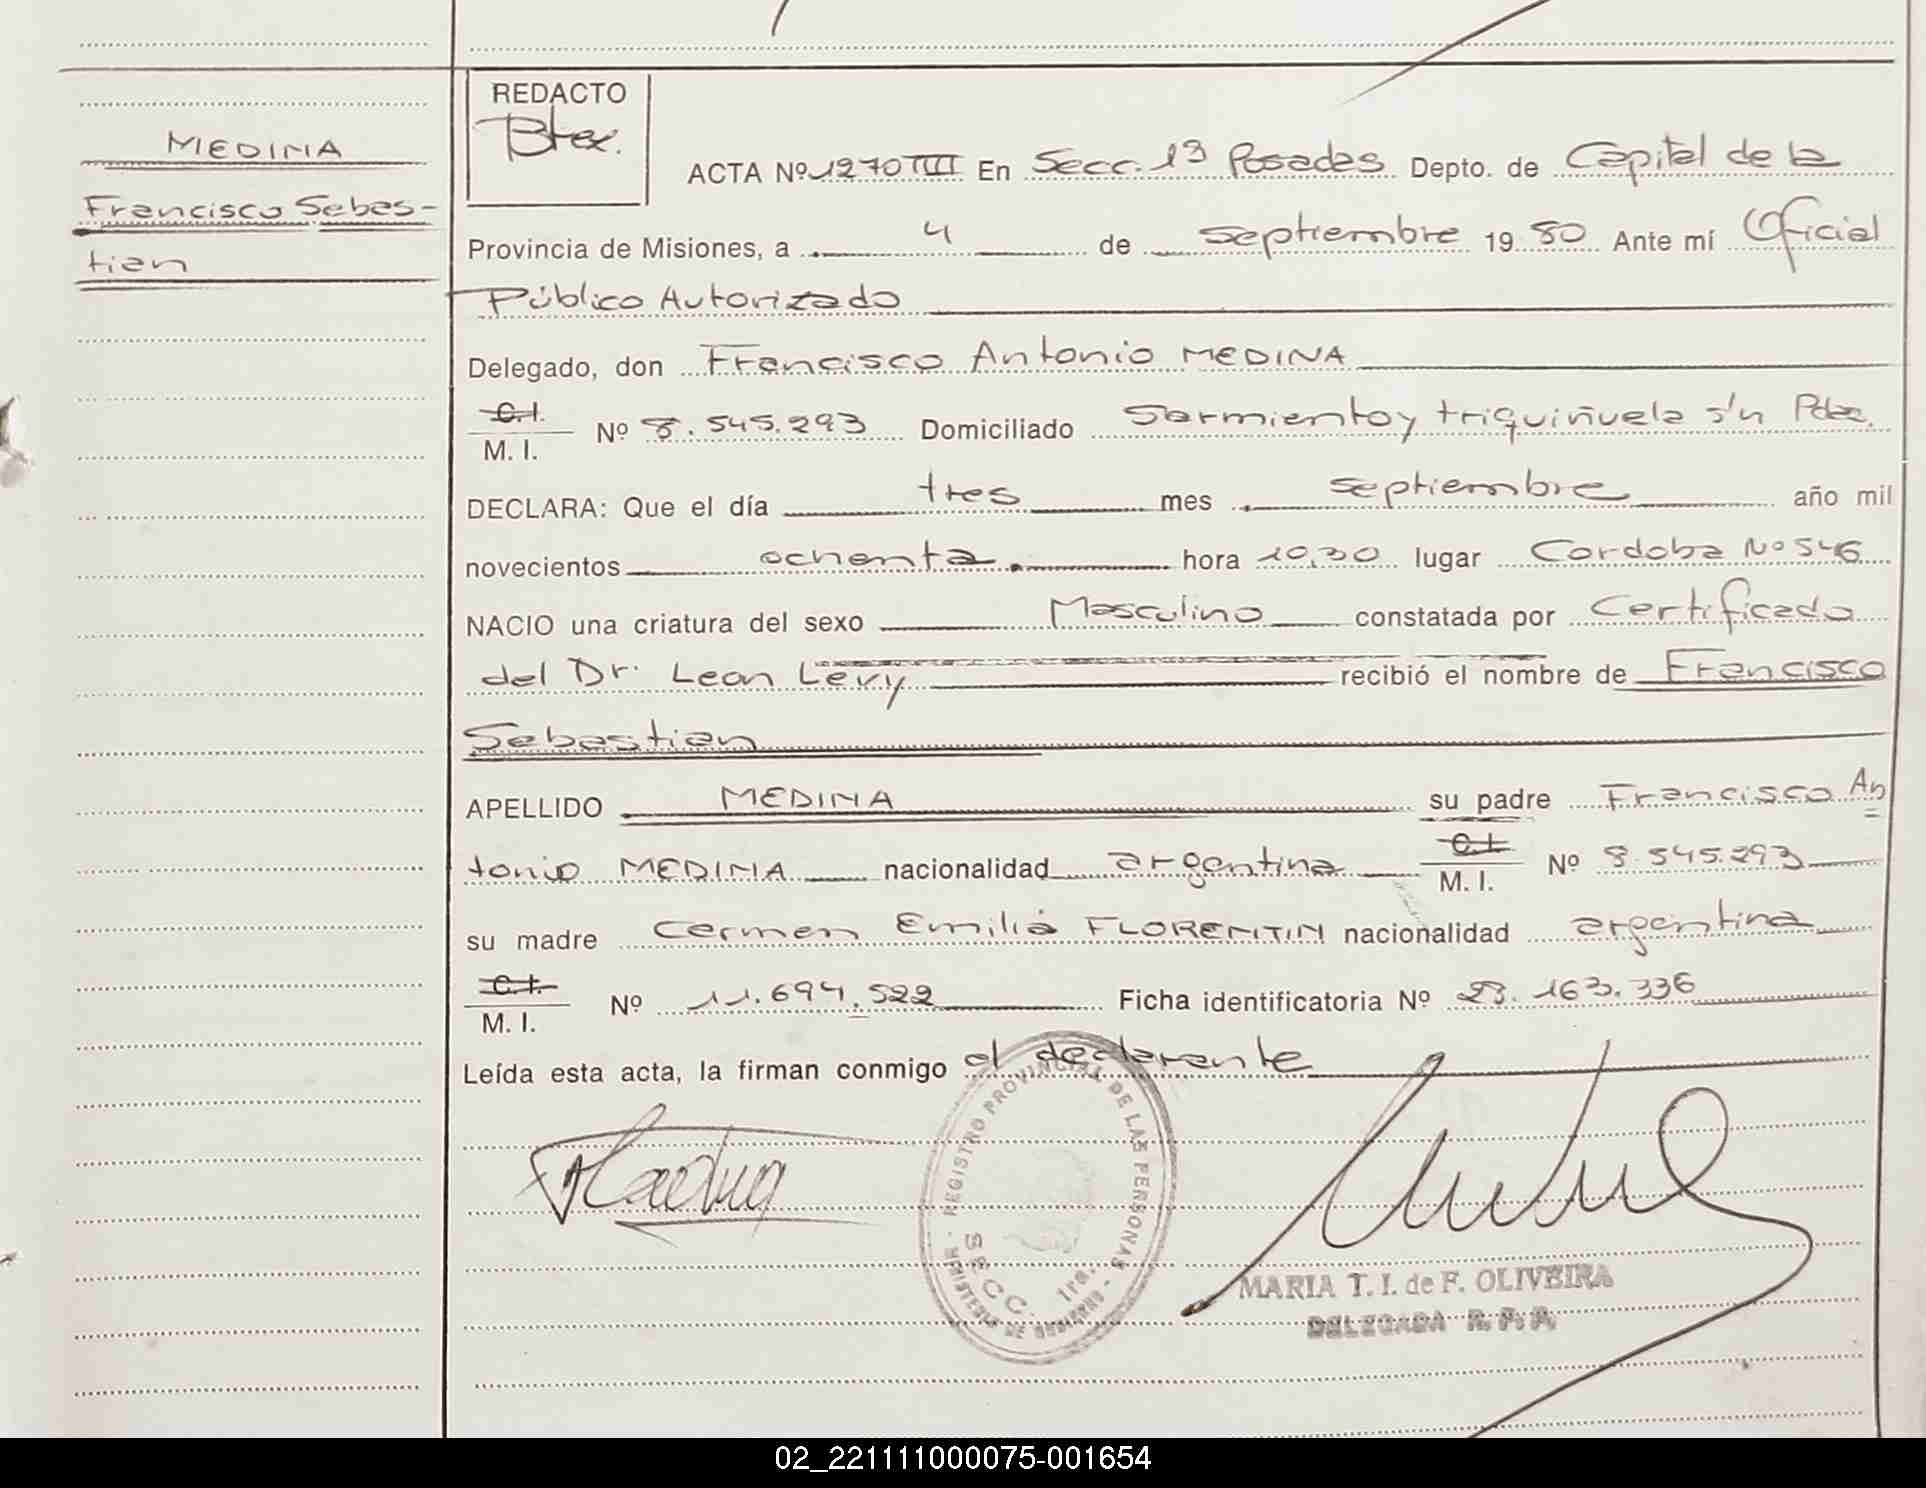 MEDINA
Francisco Sebas-
tian
REDACTO
ACTA Nº 1270 TIII En Secc. 1ª Posadas Depto. de Capital de la
Provincia de Misiones, a 4 de septiembre 1980 Ante mí Oficial
Público Autorizado
Delegado, don Francisco Antonio MEDINA
C.I.
M. I. Nº 8.545.293 Domiciliado Sarmiento y triquiñuela s/n Pdas.
DECLARA: Que el día tres mes septiembre año mil
novecientos ochenta hora 10,30 lugar Cordoba Nº 546
NACIO una criatura del sexo Masculino constatada por Certificado
del Dr. Leon Levy recibió el nombre de Francisco
Sebastian
APELLIDO MEDINA su padre Francisco An
tonio MEDINA nacionalidad argentina C.I. M. I. Nº 8.545.293
su madre Carmen Emilia FLORENTIN nacionalidad argentina
C.I.
M. I. Nº 11.694.522 Ficha identificatoria Nº 28.163.336
Leída esta acta, la firman conmigo el declarante
REGISTRO PROVINCIAL DE LAS PERSONAS
SECC. 1ra.
MINISTERIO DE GOBIERNO
MARIA T. I. de F. OLIVEIRA
DELEGADA R. P. P.
02_221111000075-001654